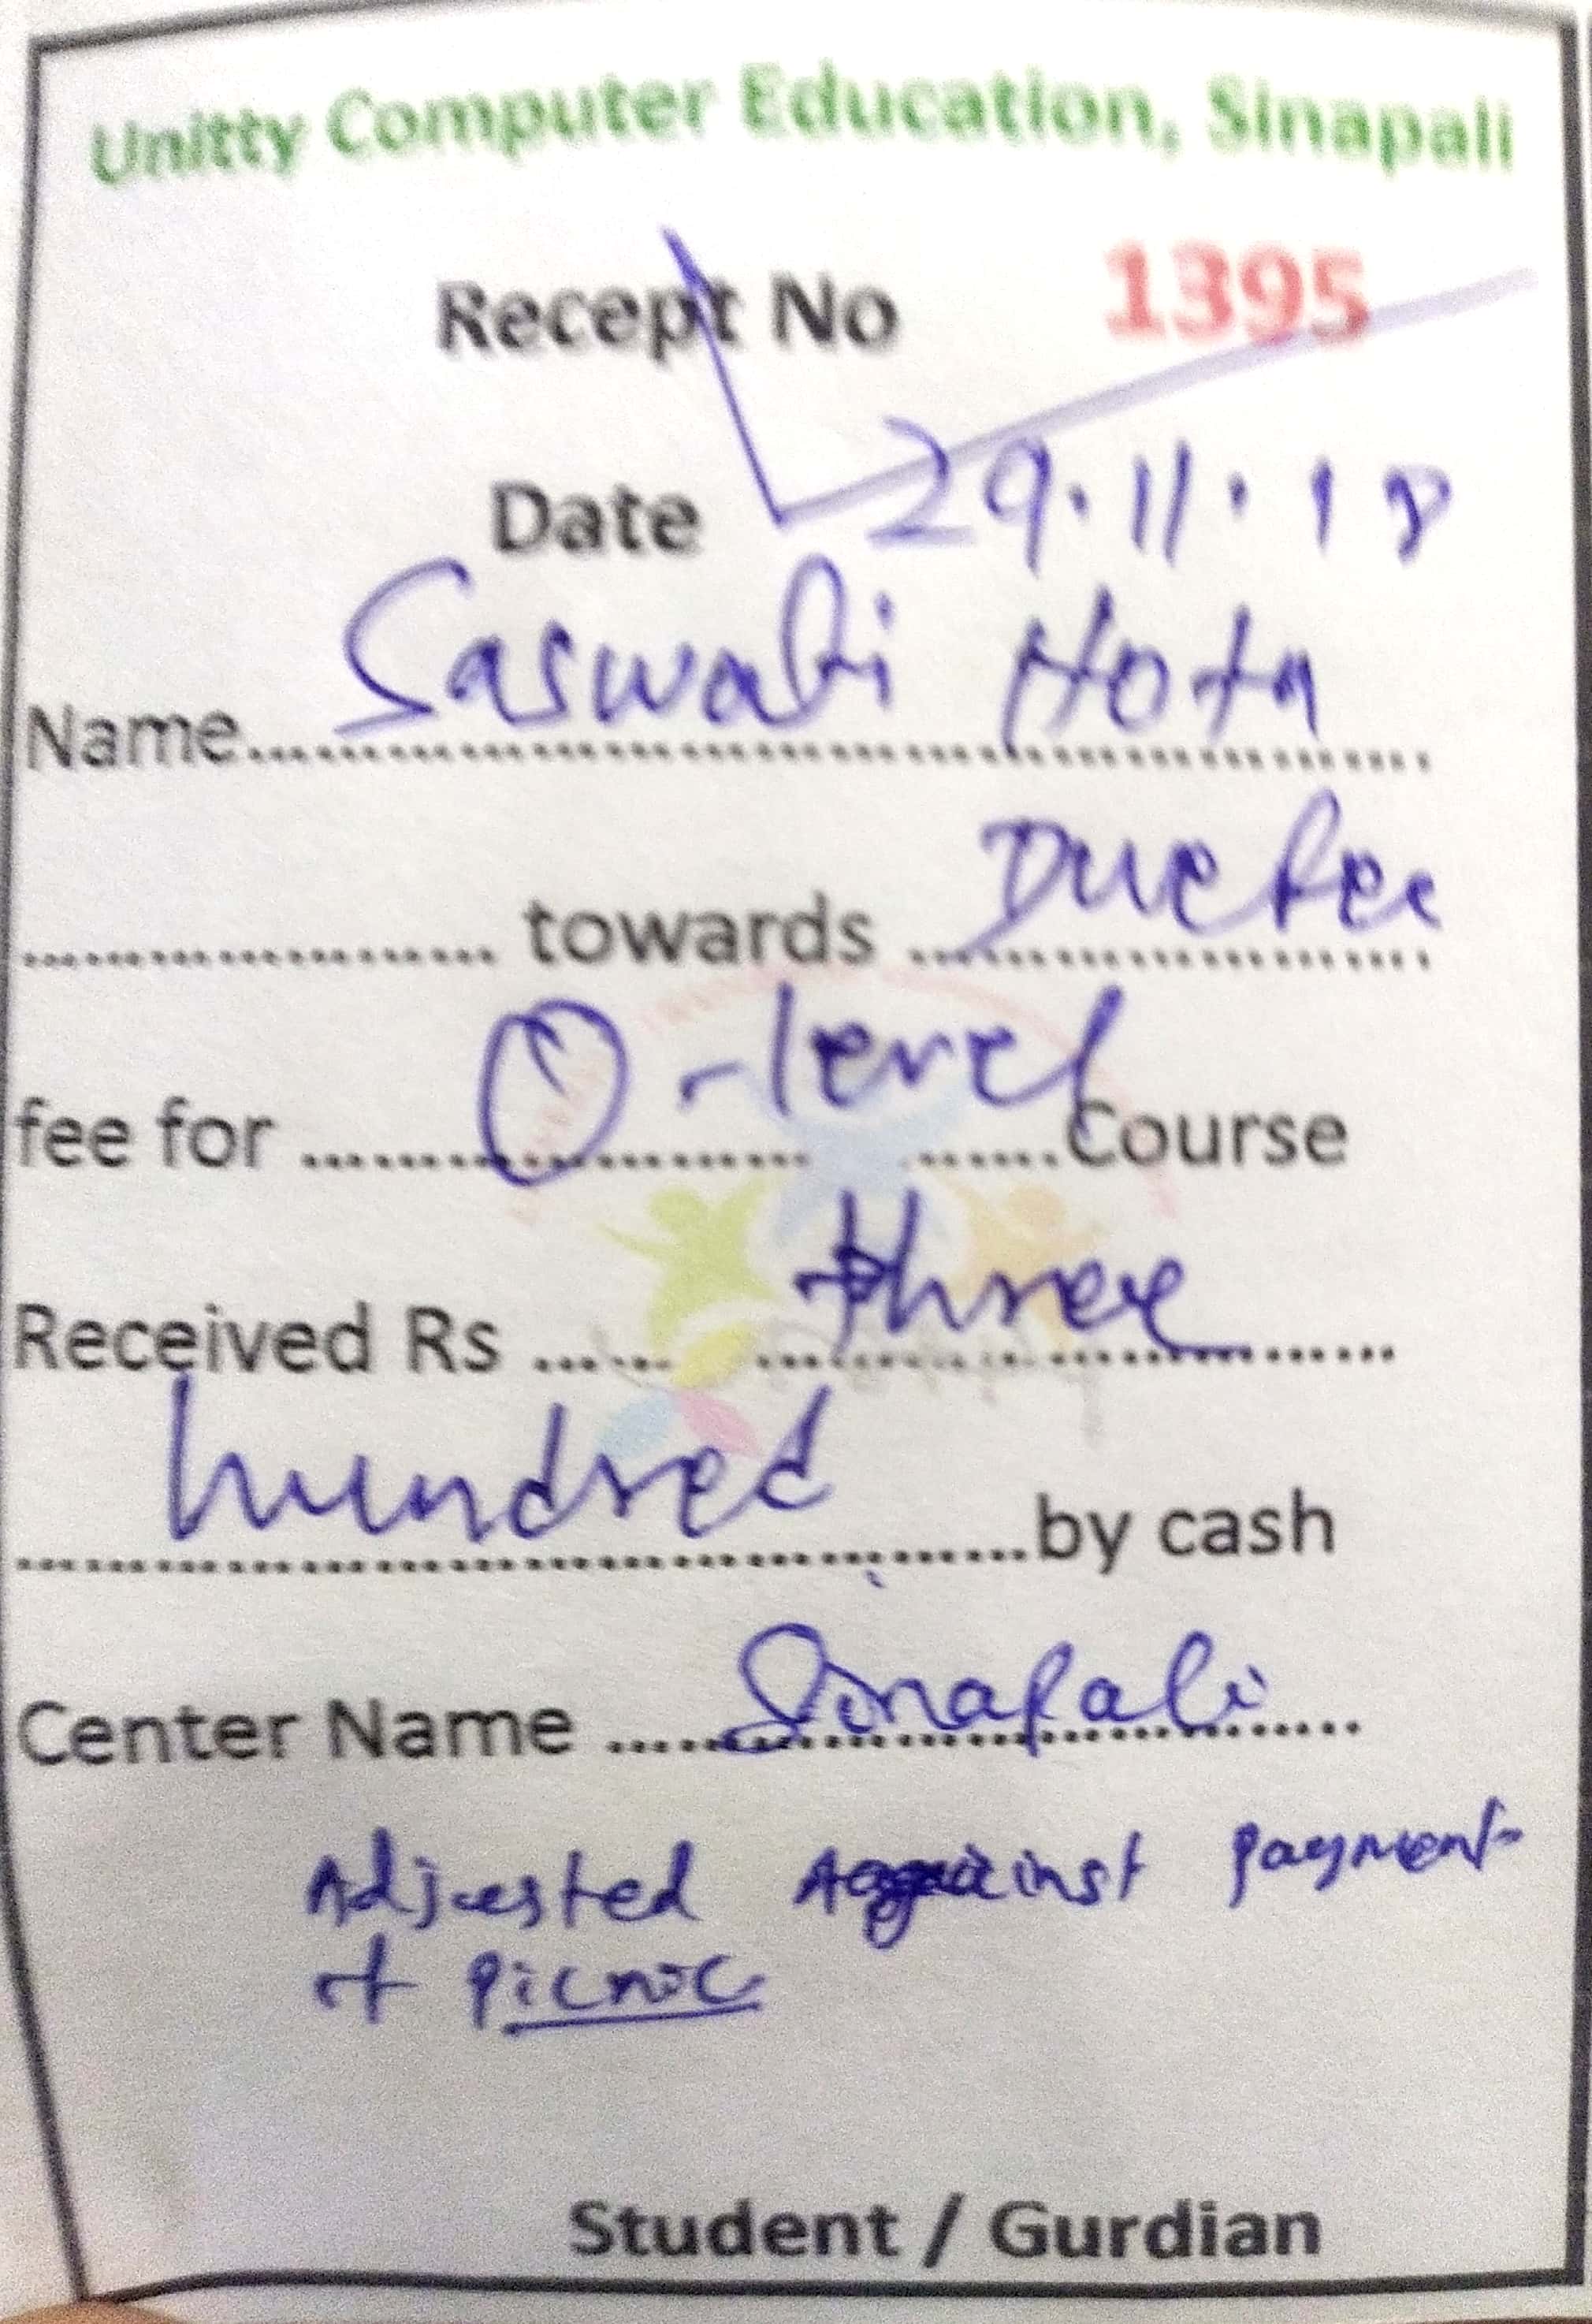 Unitty Computer Education, Sinapali
Recept No 1395
Date 29.11.18
Name.......... Saswati Hota
.......... towards .......... Due fee
fee for .......... O-level ..........Course
Received Rs .......... three
hundred ..........by cash
Center Name .......... Sinapali
Adjusted Against payment
of picnic
Student / Gurdian